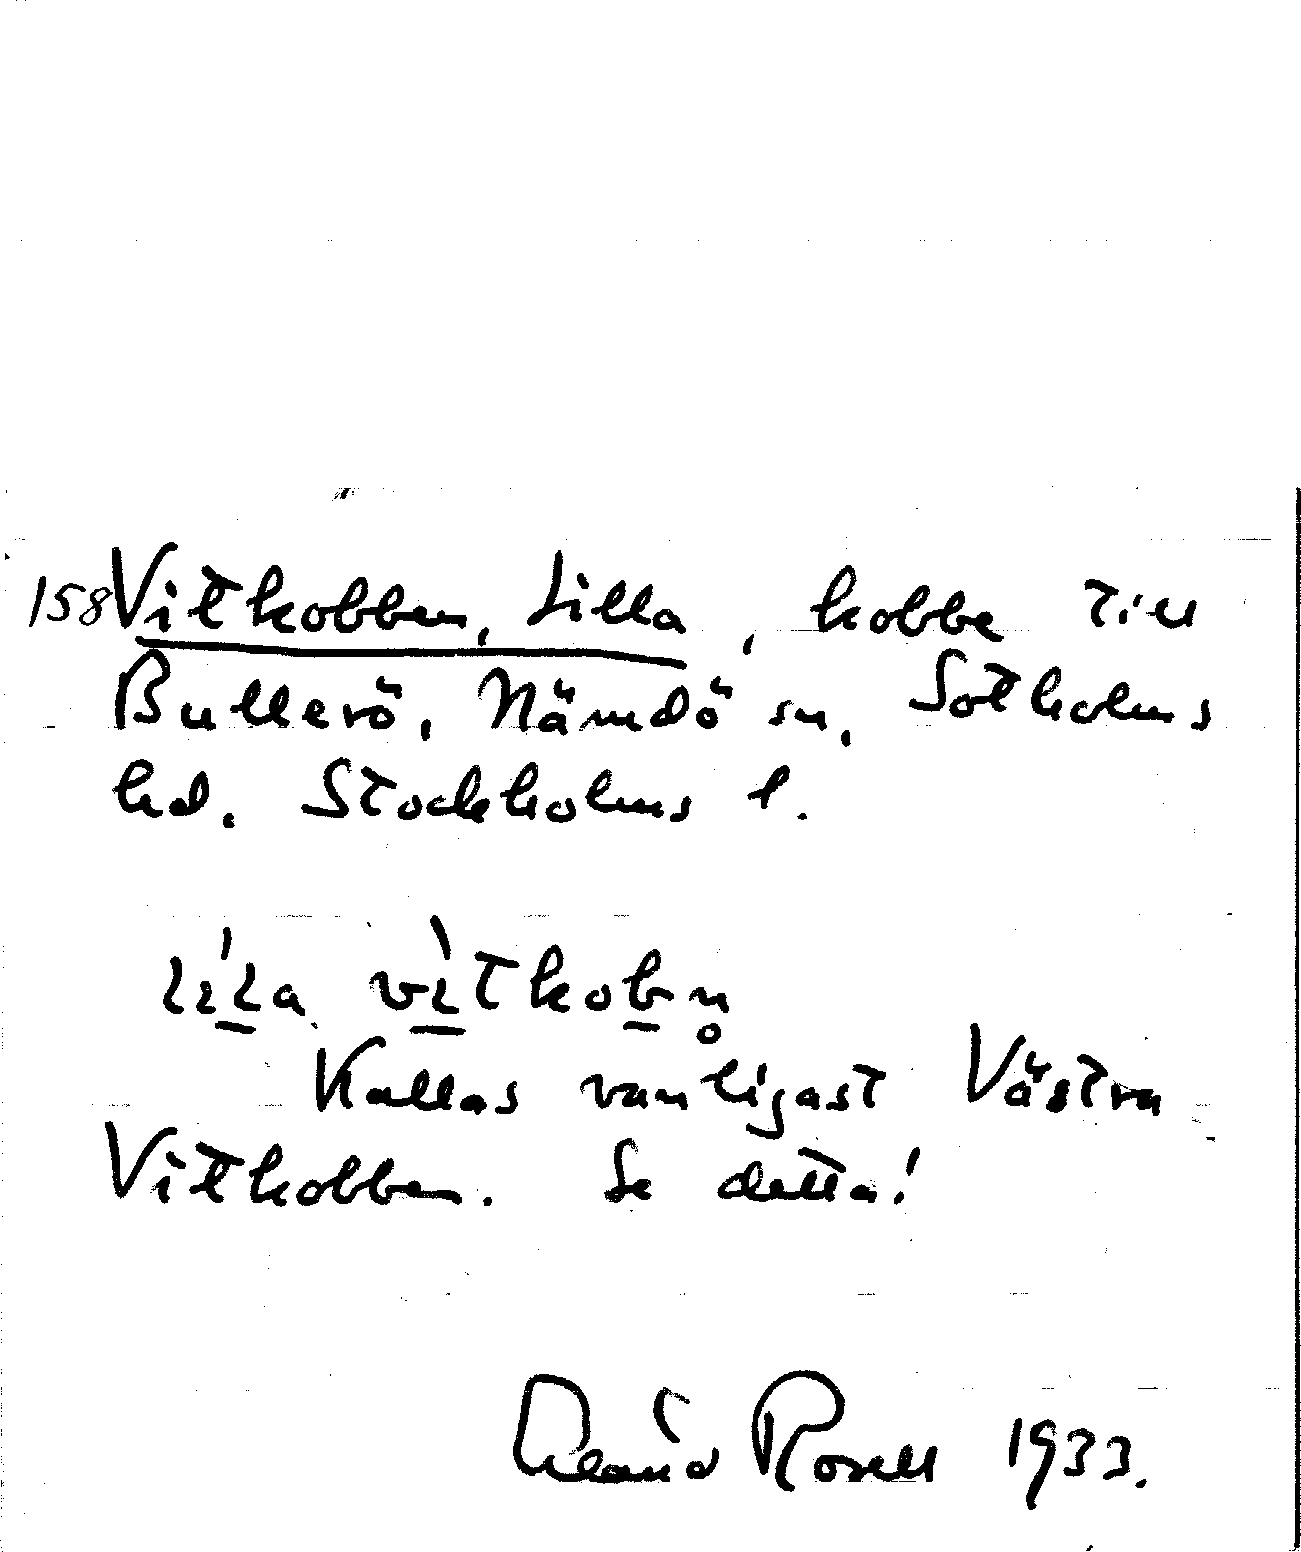 158 Vitkobben, Lilla, kobbe till
Bullerö, Nämdö sn, Sotholms
hd. Stockholms l.
lila vitkobn̥
Kallas vanligast Västra
Vitkobben. Se detta!
Rosell 1933.